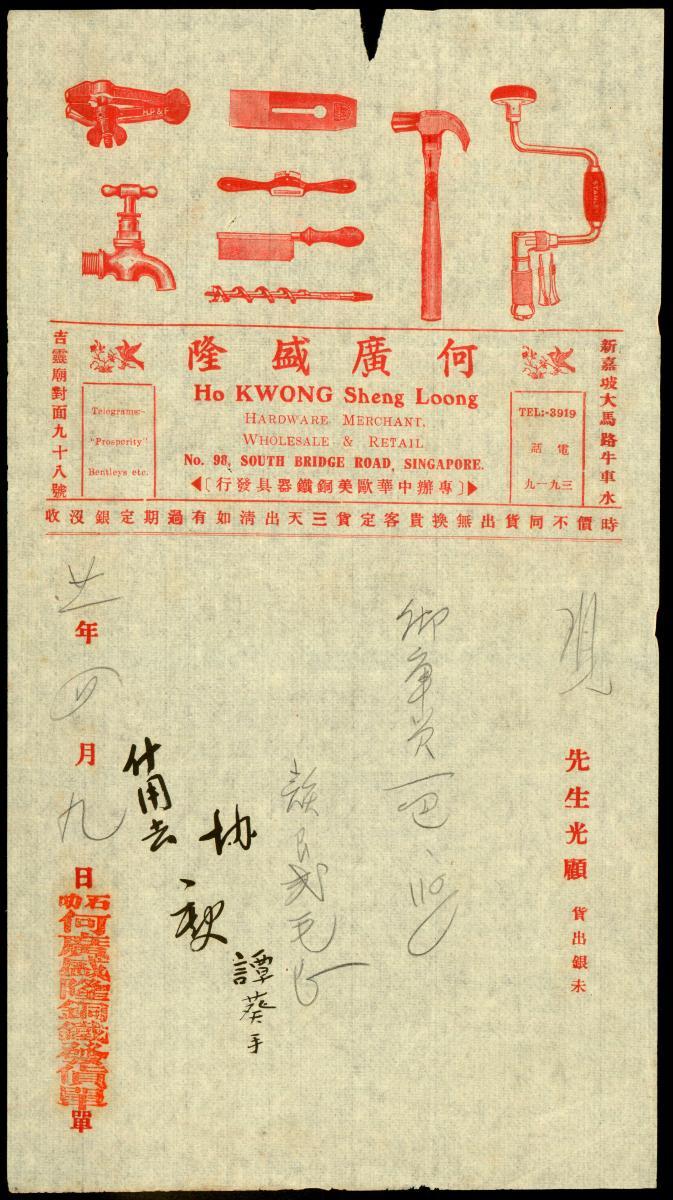 H.P&F
STANLEY
何廣盛隆
Ho KWONG Sheng Loong
HARDWARE MERCHANT,
WHOLESALE & RETAIL
No. 98, SOUTH BRIDGE ROAD, SINGAPORE.
專辦中華歐美銅鐵器具發行
新嘉坡大馬路牛車水
吉靈廟對面九十八號
TEL:-3919
電話
三九一九
Telegrams:-
"Prosperity"
Bentleys etc.
時價不同貨出無換貴客定貨三天出清如有過期定銀沒收
現
先生光顧 貨出銀未
譚葵手
協
什用去
廿一年四月九日
石叻
何廣盛隆銅鐵發貨單
單